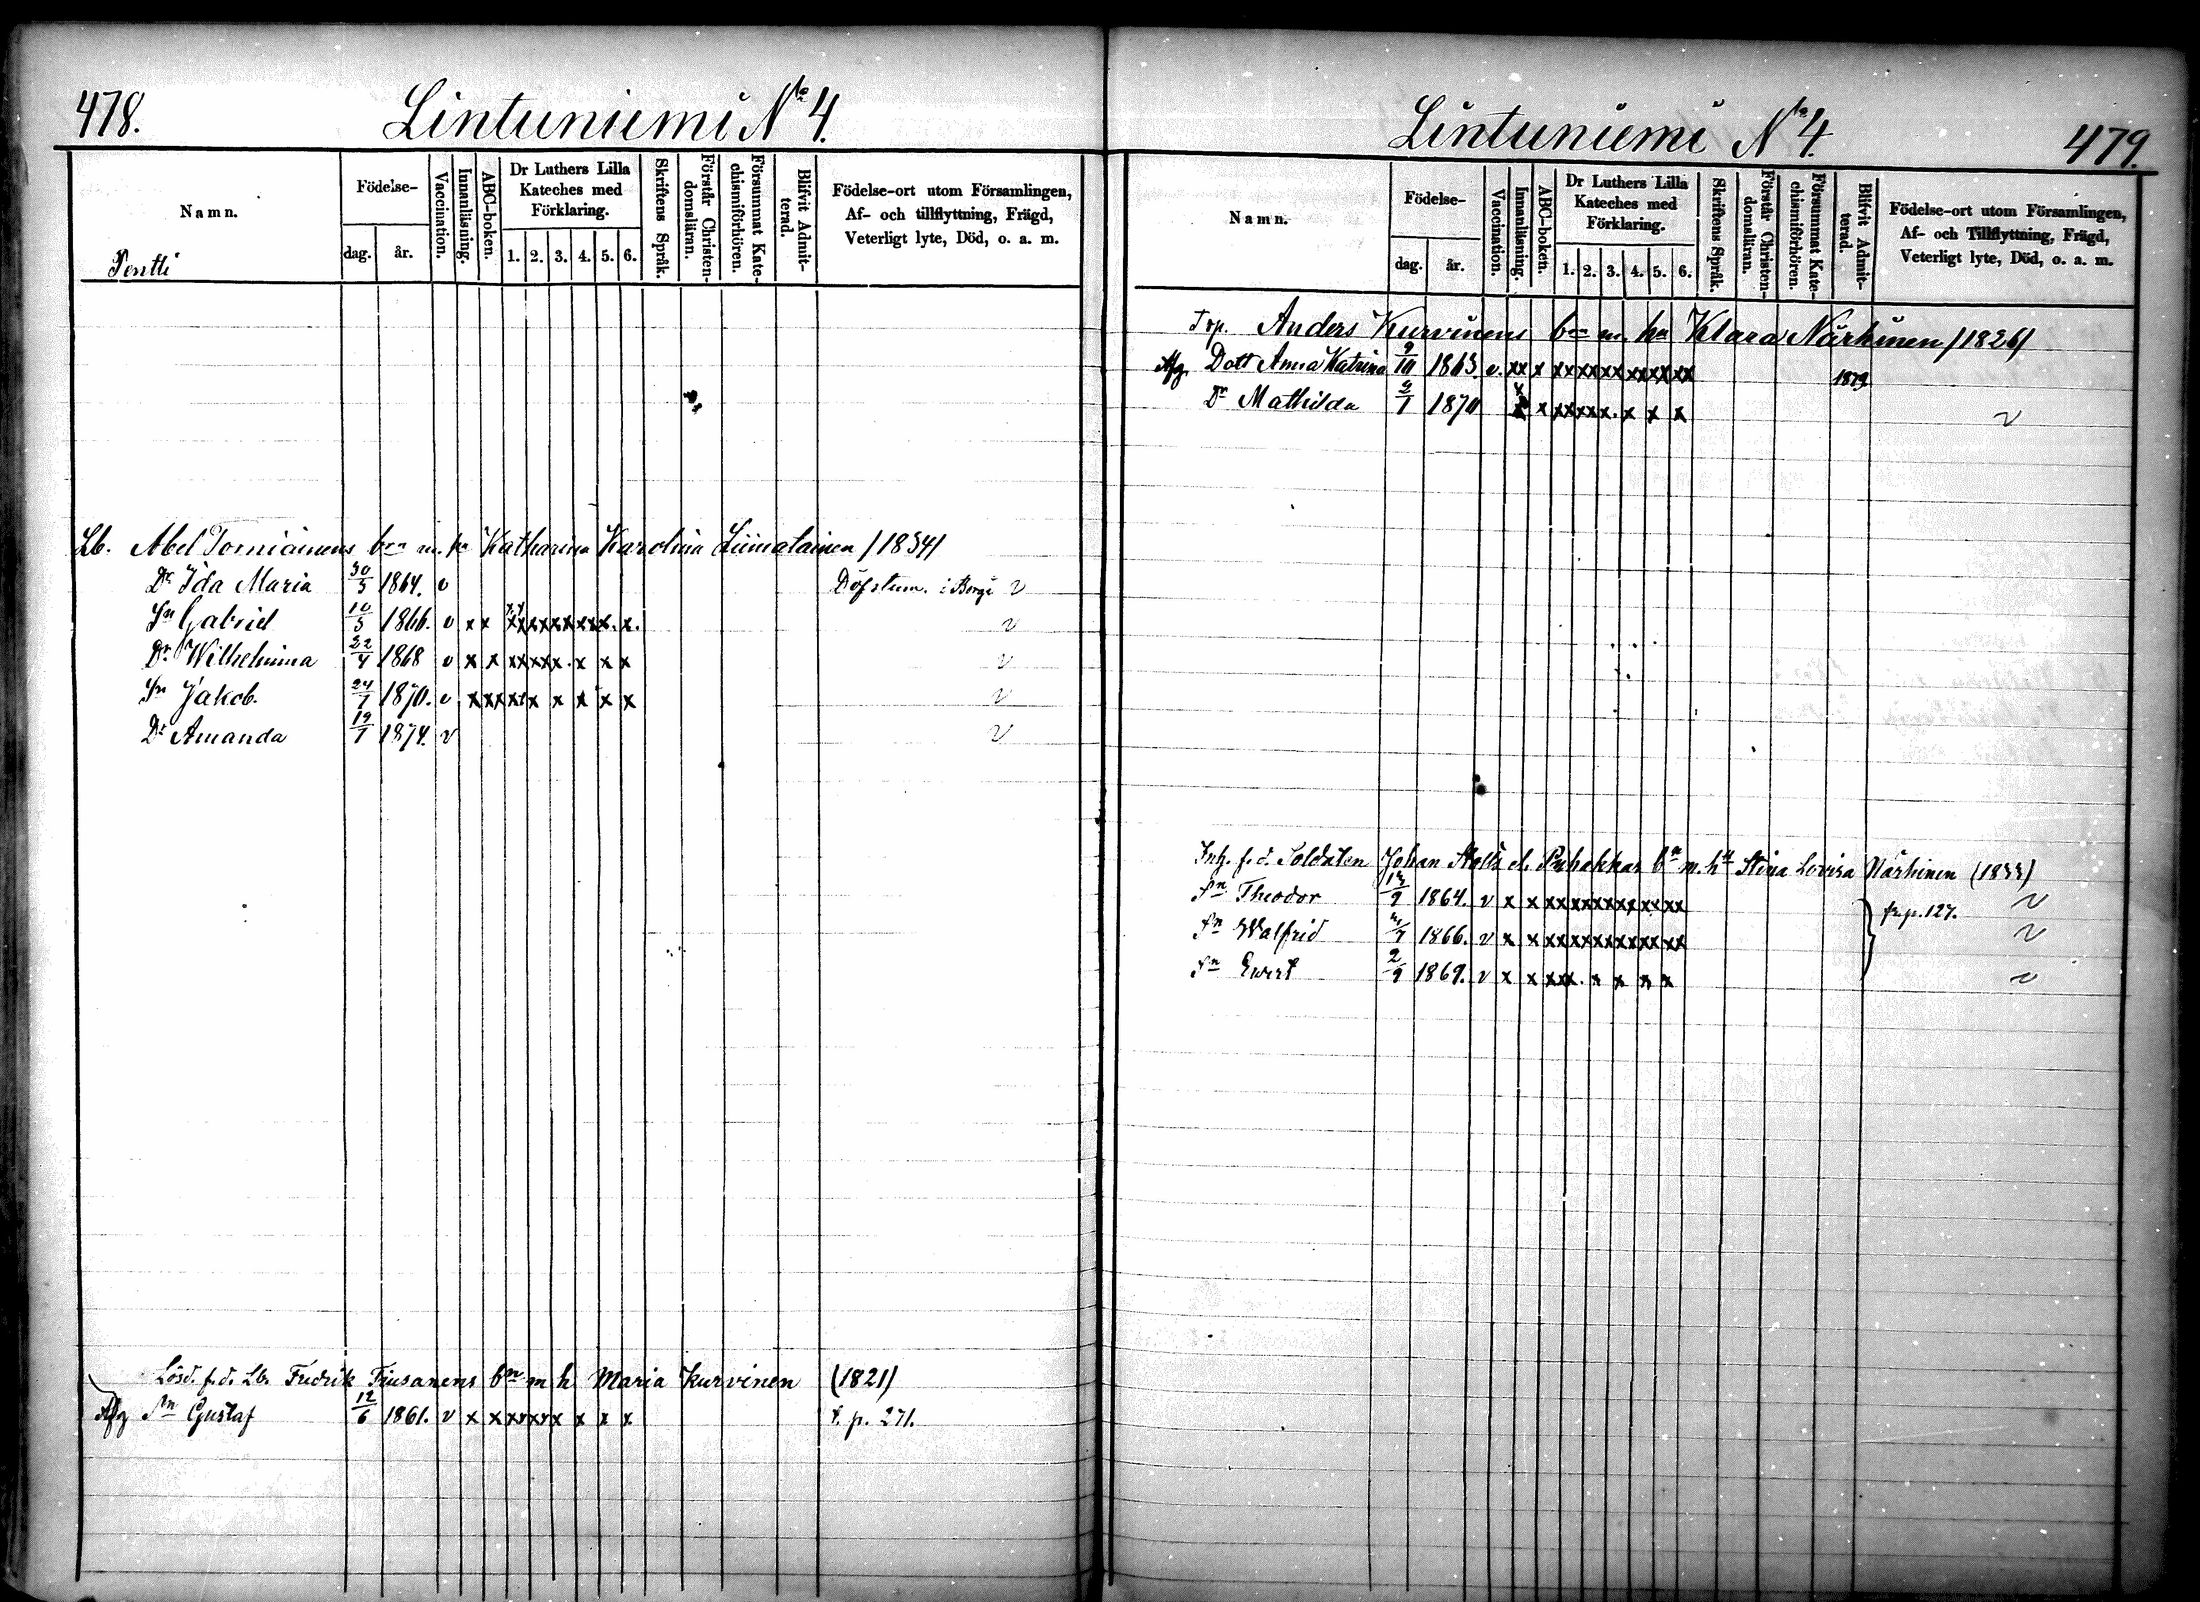 478. Lintuniemi No 4.
Namn.
Födelse-
dag. år.
Vaccination.
Innanläsning.
ABC-boken.
Dr Luthers Lilla Kateches med Förklaring.
1. 2. 3. 4. 5. 6.
Skriftens Språk.
Förstår Christendomsläran.
Försummat Katechismiförhören.
Blifvit Admitterad.
Födelse-ort utom Församlingen,
Af- och tillflyttning, Frägd,
Veterligt lyte, Död, o. a. m.
Pentti
Lb. Abel Torniainens bn m. hu Katharina Karolina Liimatainen /1834/
Dr Ida Maria 30/5 1864. v Döfstum. i Borgå v
Sn Gabriel 10/5 1866. v x x xxxxxxxxx. x. v
Dr Wilhelmina 22/4 1868 v x x xxxxx. x x x v
Sn Jakob. 24/7 1870. v xxxxxx x x x x v
Dr Amanda 19/1 1874. v v
Lösd. f.d. Lb. Fredrik Tiusanens bn m h Maria Kurvinen (1821)
Afg Sn Gustaf 12/6 1861. v x x xxxxx x x x f. p. 271.
Lintuniemi No 4. 479.
Namn.
Födelse-
dag. år.
Vaccination.
Innanläsning.
ABC-boken.
Dr Luthers Lilla Kateches med Förklaring.
1. 2. 3. 4. 5. 6.
Skriftens Språk.
Förstår Christendomsläran.
Försummat Katechismiförhören.
Blifvit Admitterad.
Födelse-ort utom Församlingen,
Af- och Tillflyttning, Frägd,
Veterligt lyte, Död, o. a. m.
Torp. Anders Kurvinens bn m. hu Klara Närhinen /1826/
Afg. Dott Anna Katrina 9/10 1863. v. xx x xxxxxxxxxxxx 1879
Dr Mathilda 9/1 1870 x x xxxxx. x x x v
Inh. f.d. Soldaten Johan Stolts el. Puhakkas bn m. hu Stina Lovisa Närhinen (1833)
Sn Theodor 13/9 1864. v x x xxxxxxxxxxxx fr. p. 127. v
Sn Walfrid 1866. v x x xxxxxxxxxxxx v
Sn Evert 2/9 1869. v x x xxx. x x x x v